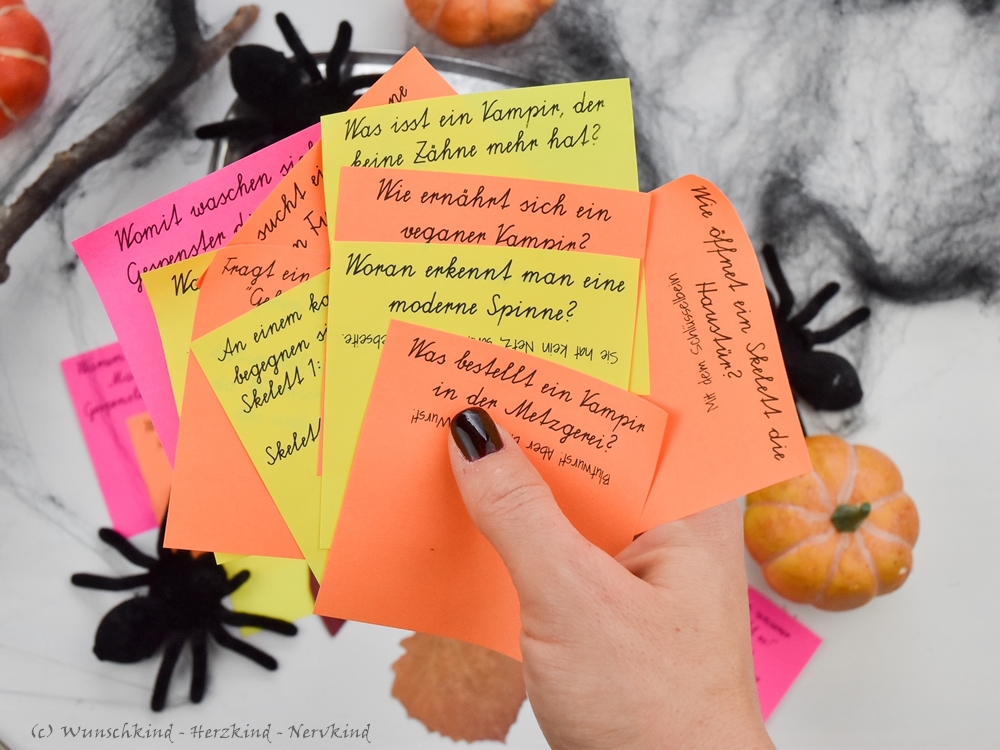 Was isst ein Vampir, der
keine Zähne mehr hat?
Wie ernährt sich ein
veganer Vampir?
Woran erkennt man eine
moderne Spinne?
Sie hat kein Netz,
ebseite.
Was bestellt ein Vampir
in der Metzgerei?
Blutwurst! Aber
Wurst!
Wie öffnet ein Skelett die
Haustür?
Mit dem Schlüsselbein
Womit waschen sich
Gespenster
sucht ei
Fragt ein
An einem ka
begegnen si
Skelett 1:
Skelett
(c) Wunschkind - Herzkind - Nervkind